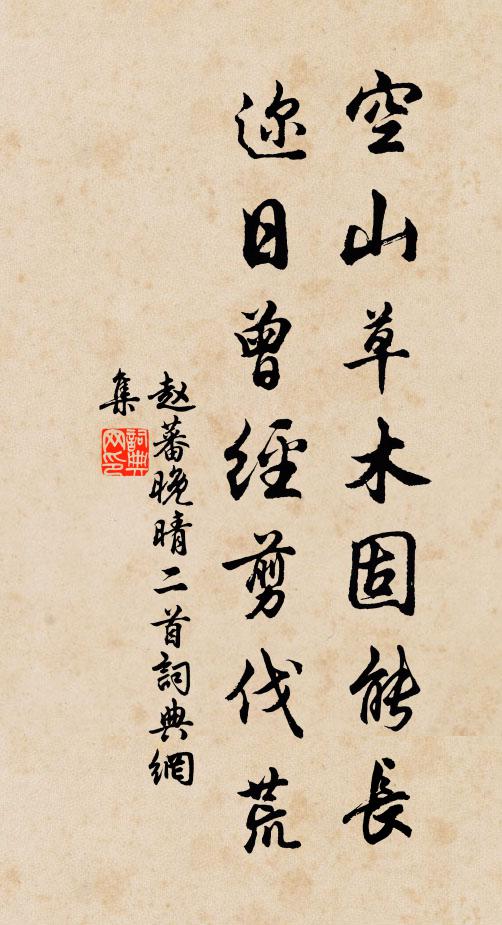 空山草木固能長
迩日曾經剪伐荒
赵蕃晚晴二首詞典網
集
詞典
网印